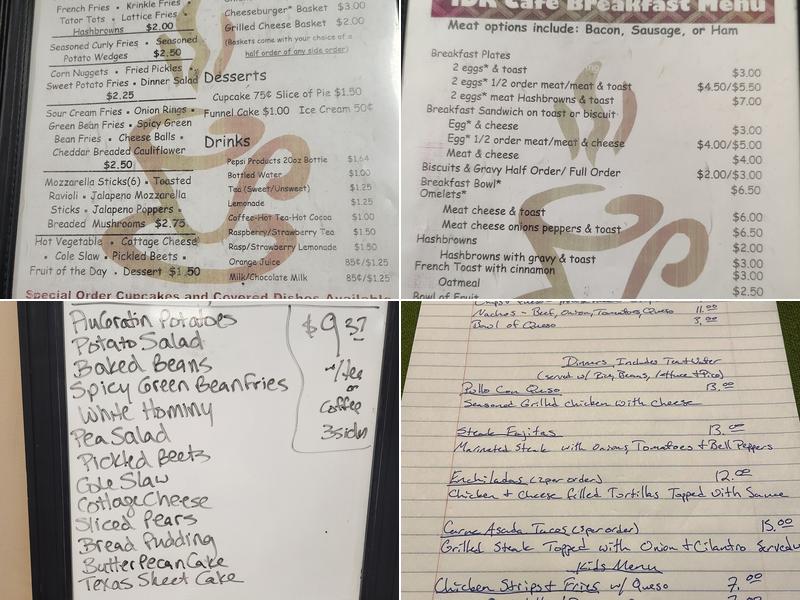 French Fries • Krinkle Fries •
Tator Tots • Lattice Fries •
Hashbrowns $2.00
Seasoned Curly Fries • Seasoned
Potato Wedges $2.50
Corn Nuggets • Fried Pickles •
Sweet Potato Fries • Dinner Salad
$2.25
Sour Cream Fries • Onion Rings •
Green Bean Fries • Spicy Green
Bean Fries • Cheese Balls •
Cheddar Breaded Cauliflower
$2.50
Mozzarella Sticks(6) • Toasted
Ravioli • Jalapeno Mozzarella
Sticks • Jalapeno Poppers •
Breaded Mushrooms $2.75
Hot Vegetable • Cottage Cheese
• Cole Slaw • Pickled Beets •
Fruit of the Day • Dessert $1.50
Cheeseburger* Basket $3.00
Grilled Cheese Basket $2.00
(Baskets come with your choice of a
half order of any side order)
Desserts
Cupcake 75¢ Slice of Pie $1.50
Funnel Cake $1.00 Ice Cream 50¢
Drinks
Pepsi Products 20oz Bottle $1.64
Bottled Water $1.00
Tea (Sweet/Unsweet) $1.25
Lemonade $1.25
Coffee-Hot Tea-Hot Cocoa $1.00
Raspberry/Strawberry Tea $1.50
Rasp/Strawberry Lemonade $1.50
Orange Juice 85¢/$1.25
Milk/Chocolate Milk 85¢/$1.25
Special Order Cupcakes and Covered Dishes Available
IDK Cafe Breakfast Menu
Meat options include: Bacon, Sausage, or Ham
Breakfast Plates
2 eggs* & toast $3.00
2 eggs* 1/2 order meat/meat & toast $4.50/$5.50
2 eggs* meat Hashbrowns & toast $7.00
Breakfast Sandwich on toast or biscuit
Egg* & cheese $3.00
Egg* 1/2 order meat/meat & cheese $4.00/$5.00
Meat & cheese $4.00
Biscuits & Gravy Half Order/ Full Order $2.00/$3.00
Breakfast Bowl* $6.50
Omelets*
Meat cheese & toast $6.00
Meat cheese onions peppers & toast $6.50
Hashbrowns $2.00
Hashbrowns with gravy & toast $3.00
French Toast with cinnamon $3.00
Oatmeal $2.50
Bowl of Fruit
AuGratin Potatoes
Potato Salad
Baked Beans
Spicy Green Bean Fries
White Hominy
Pea Salad
Pickled Beets
Cole Slaw
Cottage Cheese
Sliced Pears
Bread Pudding
Butter Pecan Cake
Texas Sheet Cake
$9.37
w/Tea
or
Coffee
3 sides
Nachos - Beef, Onion, Tomatoes, Queso 11.00
Bowl of Queso 3.00
Dinners, Includes Tea + Water
(served w/ Rice, Beans, lettuce + Pico)
Pollo Con Queso 13.00
Seasoned Grilled chicken with cheese
Steak Fajitas 13.00
Marinated Steak with Onions, Tomatoes + Bell Peppers
Enchiladas (2 per order) 12.00
Chicken + Cheese filled Tortillas Topped with Sauce
Carne Asada Tacos (3 per order) 15.00
Grilled Steak Topped with Onion + Cilantro Served w
Kids Menu
Chicken Strips + Fries w/ Queso 7.00